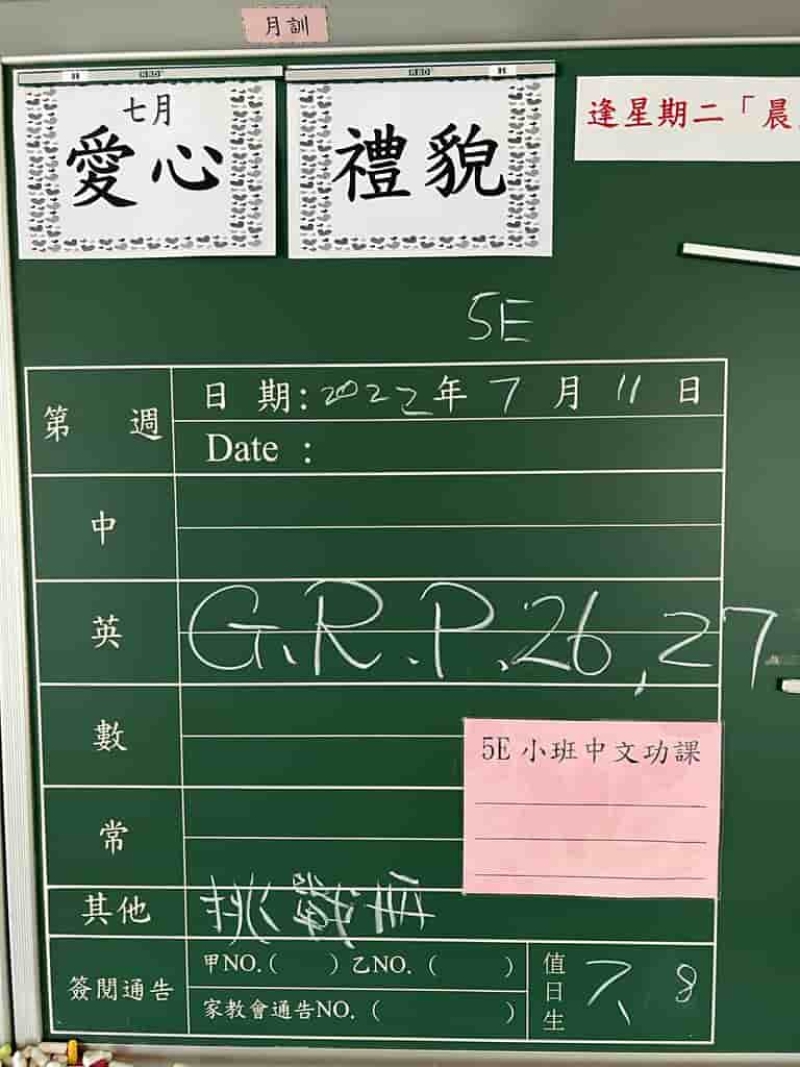 月訓
七月
愛心
禮貌
逢星期二「晨
5E
第 週
日 期: 2022年 7 月 11 日
Date :
中
英 G.R.P.26,27
數
5E 小班中文功課
常
其他 挑戰冊
簽閱通告
甲NO.( ) 乙NO. ( )
家教會通告NO. ( )
值日生 7、8